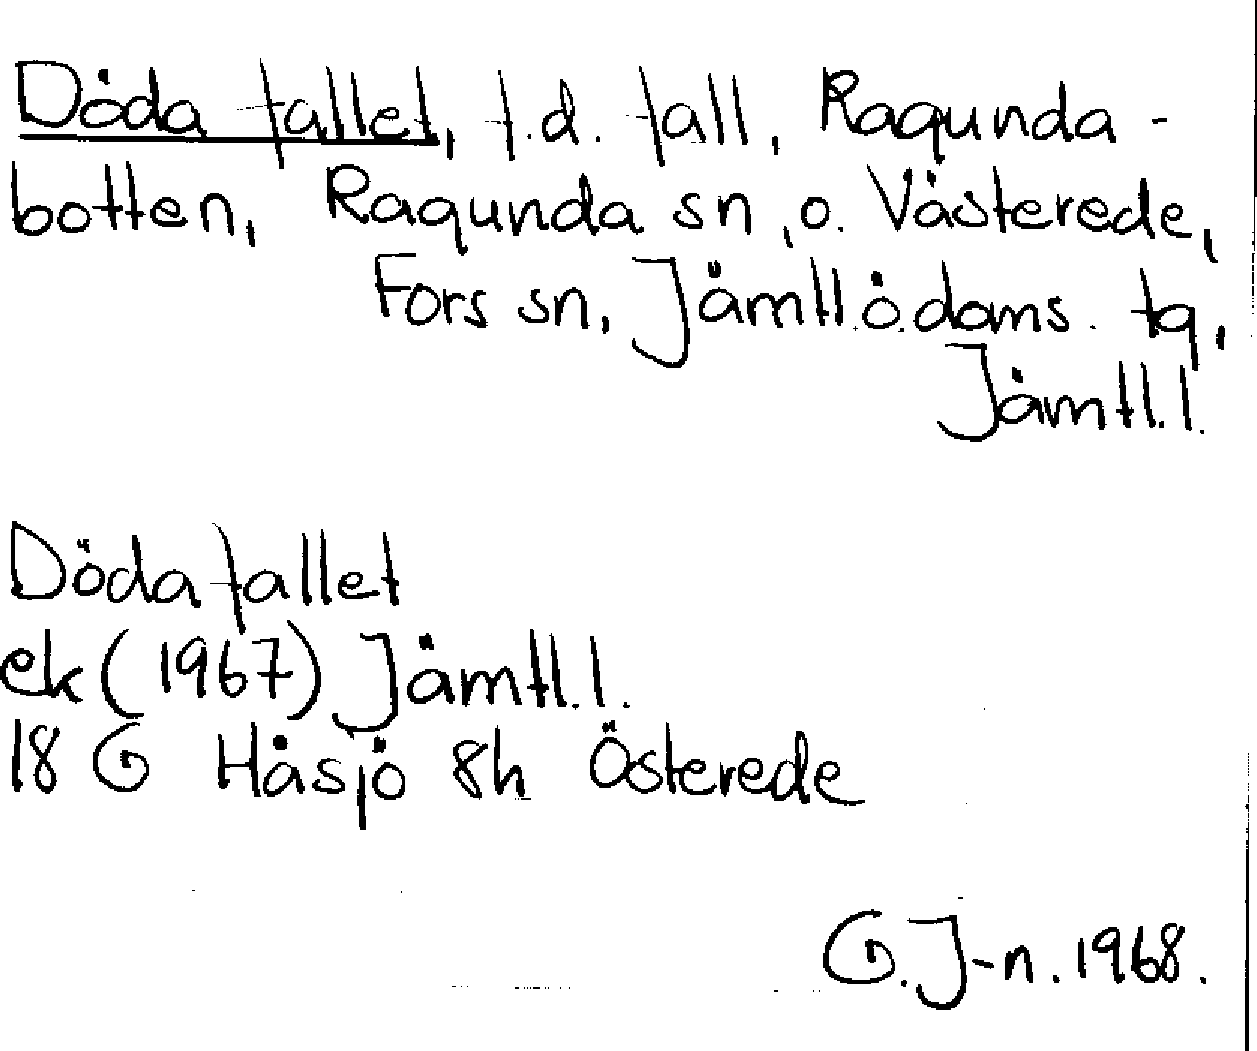 Döda fallet, f.d. fall, Ragunda-
botten, Ragunda sn, o. Västerede,
Fors sn, Jämtl.ö.doms. tg,
Jämtl.l.
Döda fallet
ek (1967) Jämtl.l.
18 G Håsjö 8h Österede
G.J-n. 1968.